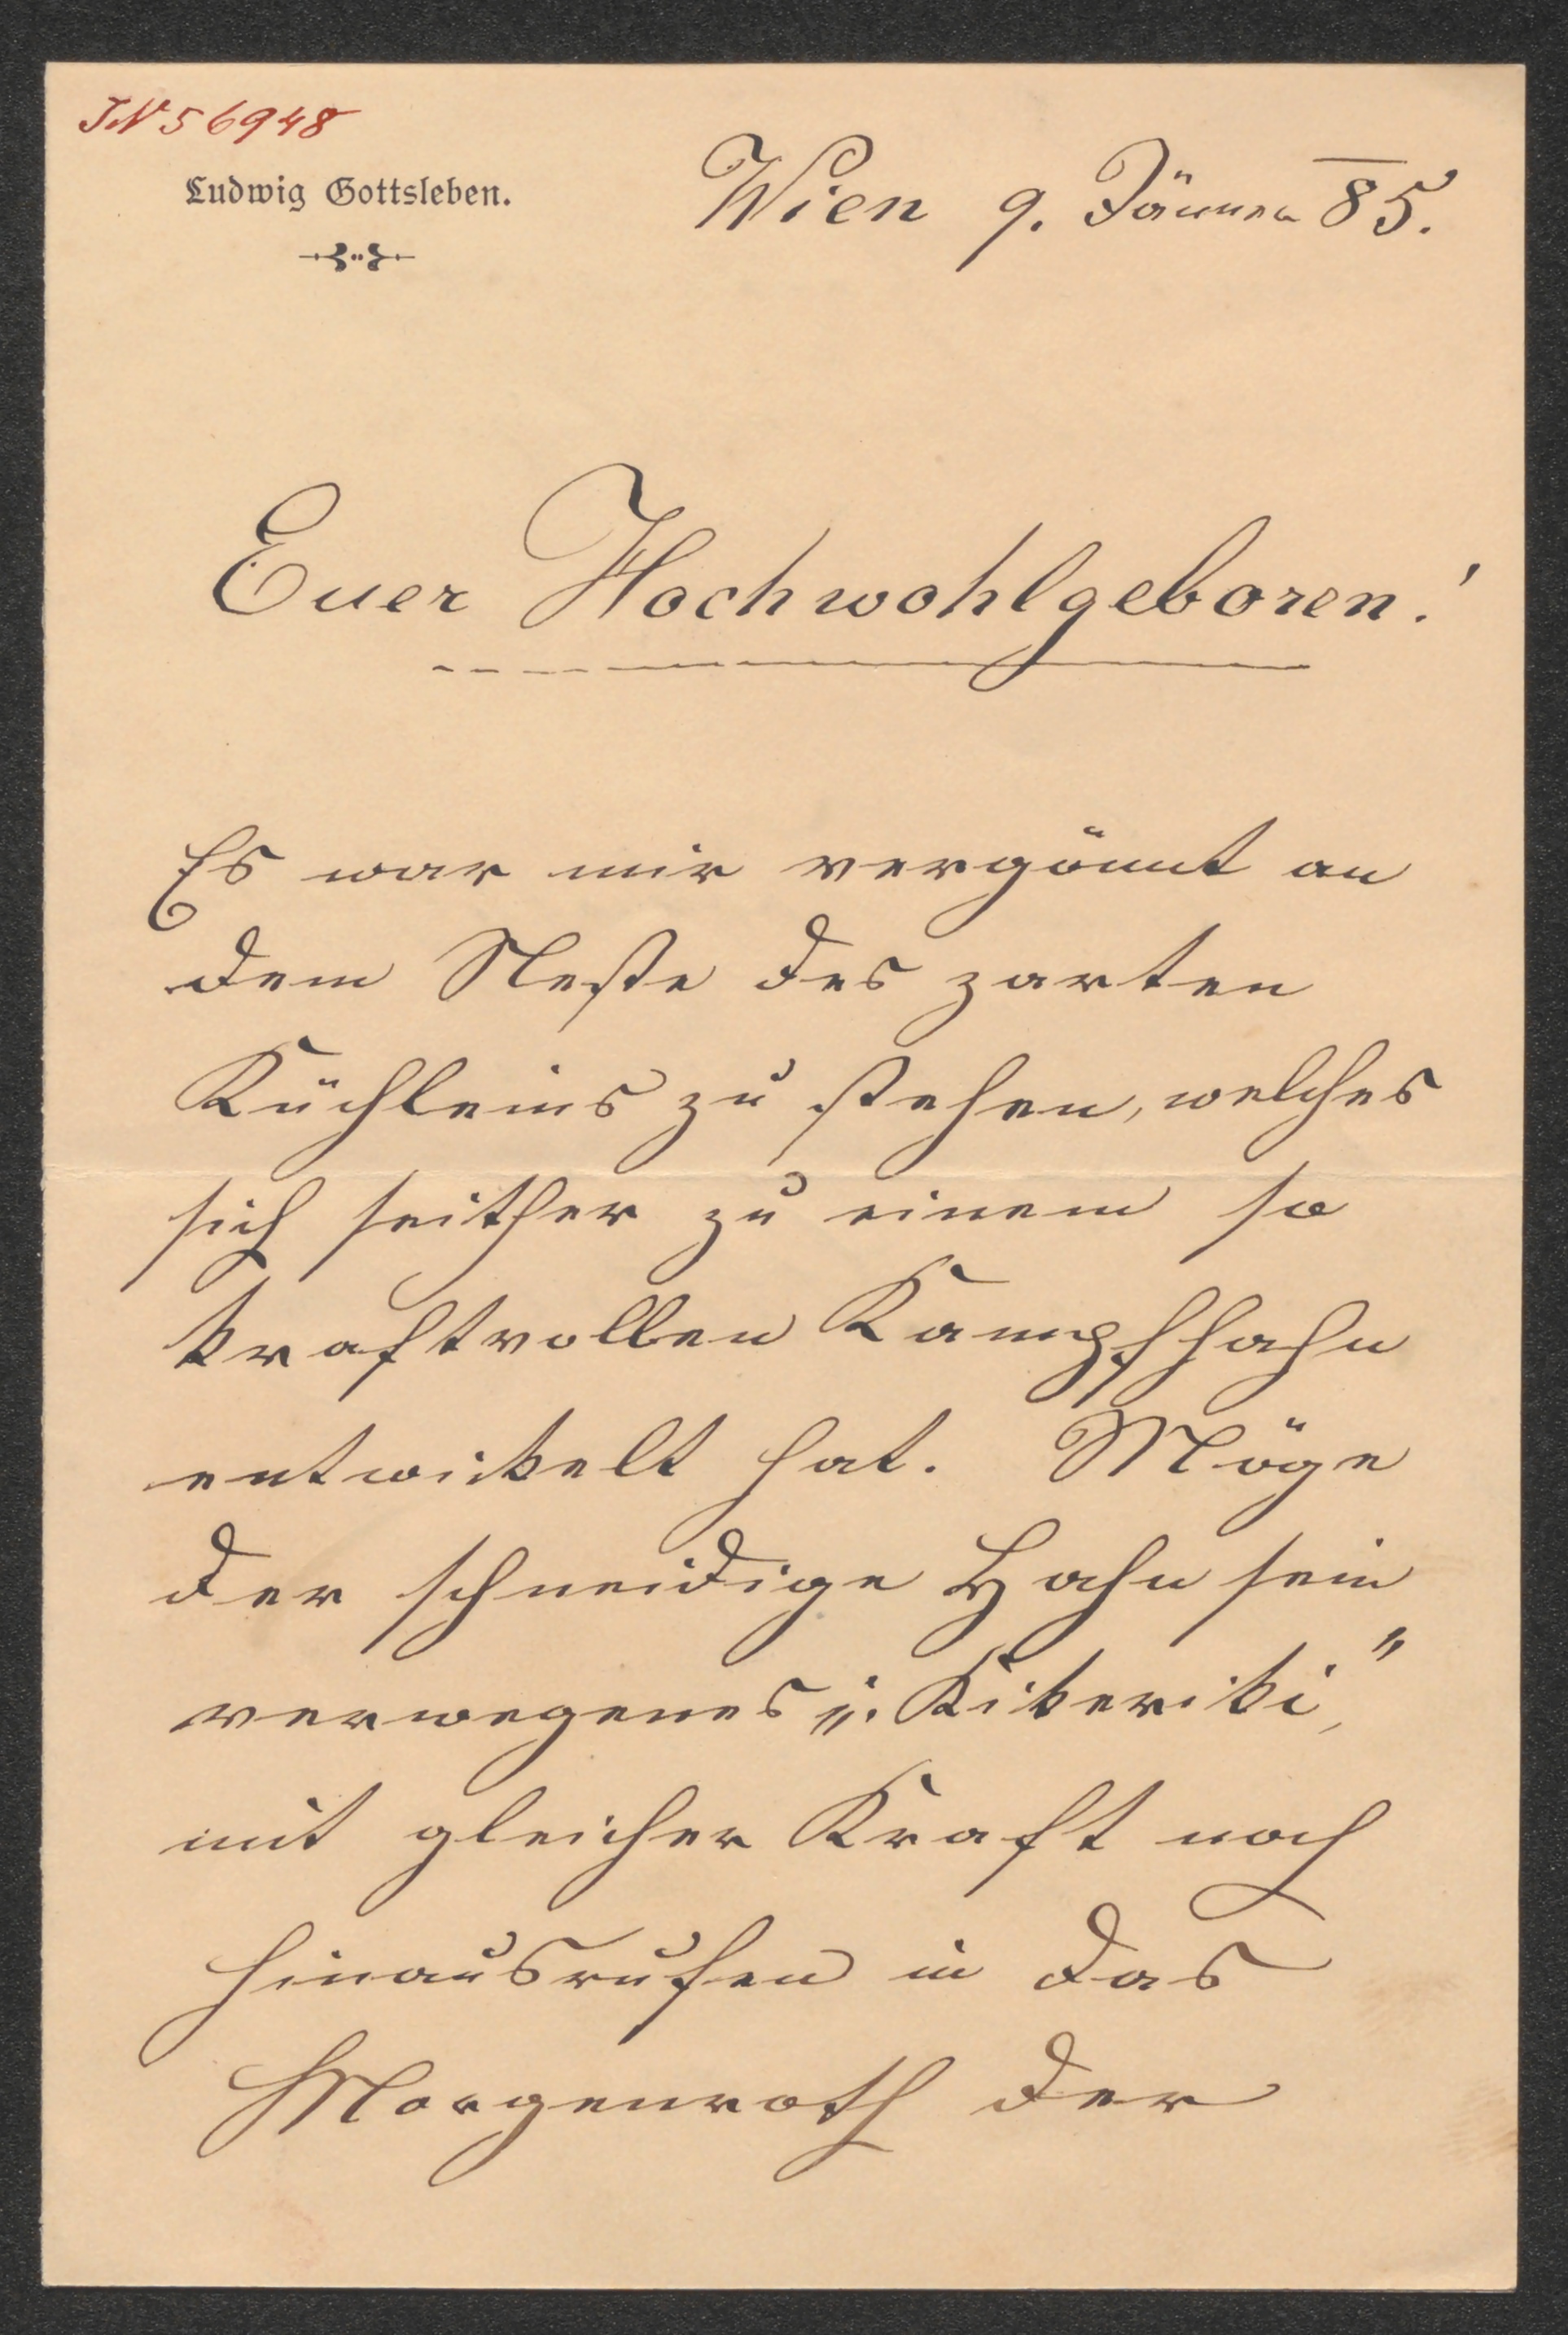 JN 56948
Ludwig Gottsleben.
Wien 9. Jänner 85.
Euer Hochwohlgeboren!
Es war mir vergönnt an
dem Neste des zarten
Küchleins zu stehen, welches
sich seither zu einem so
kraftvollen Kampfhahn
entwickelt hat. Möge
der schneidige Hahn sein
verwegenes „Kikeriki"
mit gleicher Kraft noch
hinausrufen in das
Morgenroth der